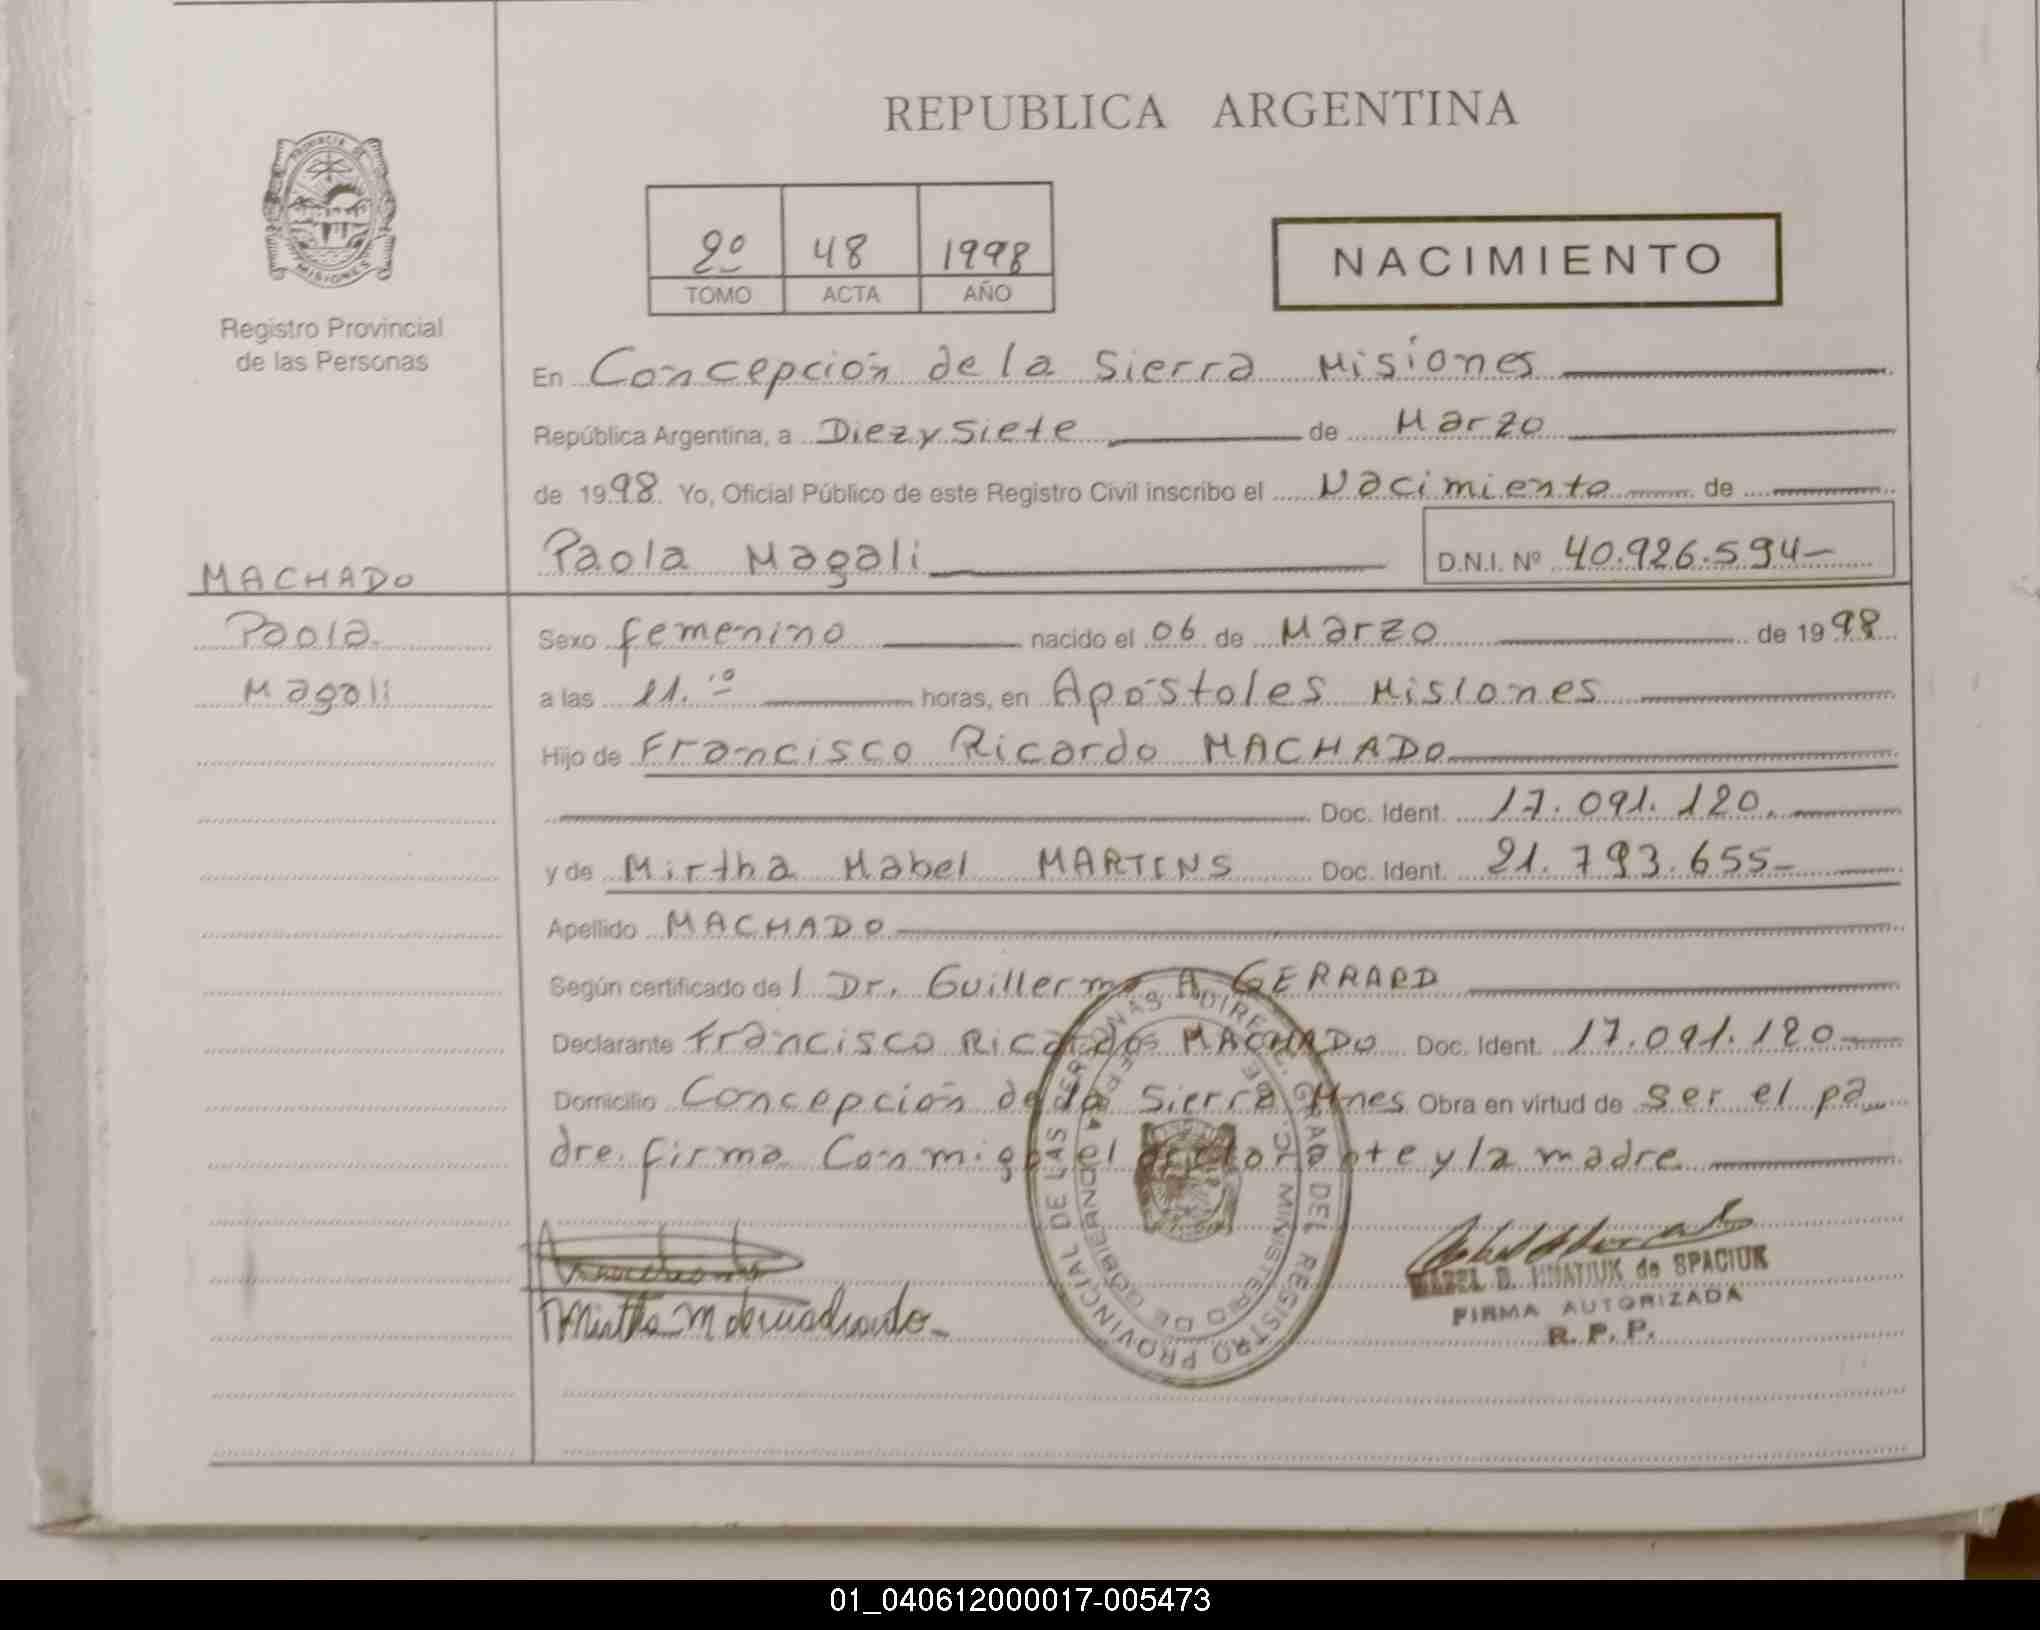 REPUBLICA ARGENTINA
PROVINCIA DE MISIONES
Registro Provincial
de las Personas
2º 48 1998
TOMO ACTA AÑO
NACIMIENTO
En Concepción de la Sierra Misiones
República Argentina, a Diez y Siete de Marzo
de 1998. Yo, Oficial Público de este Registro Civil inscribo el Nacimiento de
Paola Magali D.N.I. Nº 40.926.594-
MACHADO
Paola
Magali
Sexo femenino nacido el 06 de Marzo de 1998
a las 11.10 horas, en Apóstoles Misiones
Hijo de Francisco Ricardo MACHADO
Doc. Ident. 17.091.120.
y de Mirtha Mabel MARTINS Doc. Ident. 21.793.655-
Apellido MACHADO
Según certificado del Dr. Guillermo A GERRARD
Declarante Francisco Ricardo MACHADO Doc. Ident. 17.091.120
Domicilio Concepción de la Sierra Mnes Obra en virtud de ser el pa
dre. firma Conmigo el declarante y la madre
DIREC. GRAL DEL REGISTRO PROVINCIAL DE LAS PERSONAS
MINISTERIO DE GOBIERNO
Mirtha M de Machado
MABEL B. HNATIUK de SPACIUK
FIRMA AUTORIZADA
R. P. P.
01_040612000017-005473